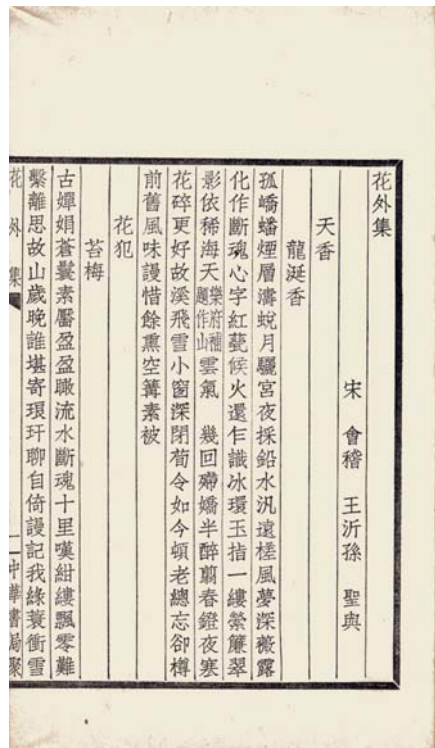 花外集
宋 會稽 王沂孫 聖與
天香
龍涎香
孤嶠蟠煙層濤蛻月驪宮夜採鉛水汎遠槎風夢深薇露
化作斷魂心字紅甆候火還乍識冰環玉指一縷縈簾翠
影依稀海天樂府補題作山雲氣 幾回殢嬌半醉翦春鐙夜寒
花碎更好故溪飛雪小窗深閉荀令如今頓老總忘卻樽
前舊風味謾惜餘熏空篝素被
花犯
苔梅
古嬋娟蒼鬟素靨盈盈瞰流水斷魂十里嘆紺縷飄零難
繫離思故山歲晚誰堪寄琅玕聊自倚謾記我綠蓑衝雪
花外集 一 中華書局聚